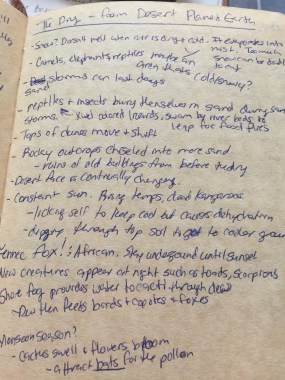 The Dry - from Desert Planet Earth
- Snow? Doesn't melt when air is dry + cold. It evaporates into
mist.
- Camels, elephants, reptiles
Area thats cold/snowy?
snow can be deadly
sand storms can last days
- reptiles + insects bury themselves in sand during sand
storms. colored lizards, swarm by river beds to
leap for food flies
- Tops of dunes move + shift
- Rocky outcrops chiseled into more sand.
- ruins of old buildings from before the dry
- Desert face is continually changing.
- Constant sun. Rising temps, dead kangaroos
- licking self to keep cool but causes dehydration
- digging through top soil to get to cooler ground
Fennec Fox! : African. Stay underground until sunset
New creatures appear at night such as toads, scorpions
Shore fog provides water to cacti through dew
- Dew then feeds birds + coyotes + foxes
Monsoon season?
- Cactus swell + flowers bloom
- attract bats for the pollen